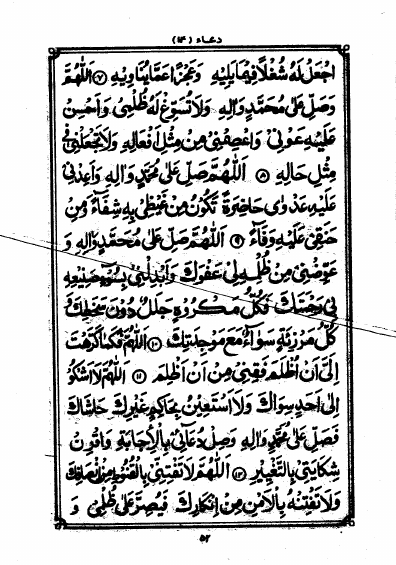 دعاء (۱۴)
اجْعَلْ لَهُ شُغْلًا فِيمَا يَلِيهِ وَعَجْزًا عَمَّا يُنَاوِيهِ ⑦ اَللّٰهُمَّ
وَصَلِّ عَلٰى مُحَمَّدٍ وَاٰلِهِ وَلَا تُسَوِّغْ لَهُ ظُلْمِى وَاَحْسِنْ
عَلَيْهِ عَوْنِى وَاعْصِمْنِى مِنْ مِثْلِ اَفْعَالِهِ وَلَا تَجْعَلْنِى فِى
مِثْلِ حَالِهِ ⑧ اَللّٰهُمَّ صَلِّ عَلٰى مُحَمَّدٍ وَاٰلِهِ وَاَعْدِنِى
عَلَيْهِ عَدْوٰى حَاضِرَةً تَكُونُ مِنْ غَيْظِى بِهِ شِفَاءً وَمِنْ
حَنَقِى عَلَيْهِ وَفَاءً ⑨ اَللّٰهُمَّ صَلِّ عَلٰى مُحَمَّدٍ وَاٰلِهِ وَ
عَوِّضْنِى مِنْ ظُلْمِهِ لِى عَفْوَكَ وَاَبْدِلْنِى بِسُوءِ صَنِيعِهِ
بِى رَحْمَتَكَ فَكُلُّ مَكْرُوهٍ جَلَلٌ دُونَ سَخَطِكَ وَ
كُلُّ مَرْزِئَةٍ سَوَاءٌ مَعَ مَوْجِدَتِكَ ⑩ اَللّٰهُمَّ فَكَمَا كَرَّهْتَ
اِلَىَّ اَنْ اُظْلَمَ فَقِنِى مِنْ اَنْ اَظْلِمَ ⑪ اَللّٰهُمَّ لَا اَشْكُو
اِلٰى اَحَدٍ سِوَاكَ وَلَا اَسْتَعِينُ بِحَاكِمٍ غَيْرِكَ حَاشَاكَ
فَصَلِّ عَلٰى مُحَمَّدٍ وَاٰلِهِ وَصِلْ دُعَائِى بِالْاِجَابَةِ وَاقْرِنْ
شِكَايَتِى بِالتَّغْيِيرِ ⑫ اَللّٰهُمَّ لَا تَفْتِنِّى بِالْقُنُوطِ مِنْ اِنْصَافِكَ
وَلَا تَفْتِنْهُ بِالْاَمْنِ مِنْ اِنْكَارِكَ فَيُصِرَّ عَلٰى ظُلْمِى وَ
۵۲